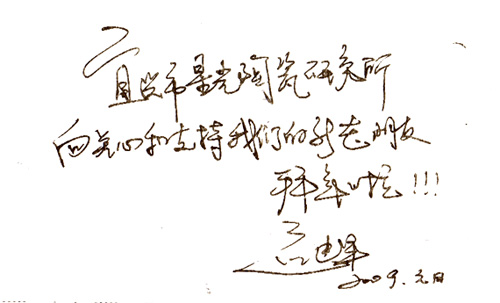 宜兴市星光陶瓷研究所
向关心和支持我们的新老朋友
拜年啦!!!
2009.元月